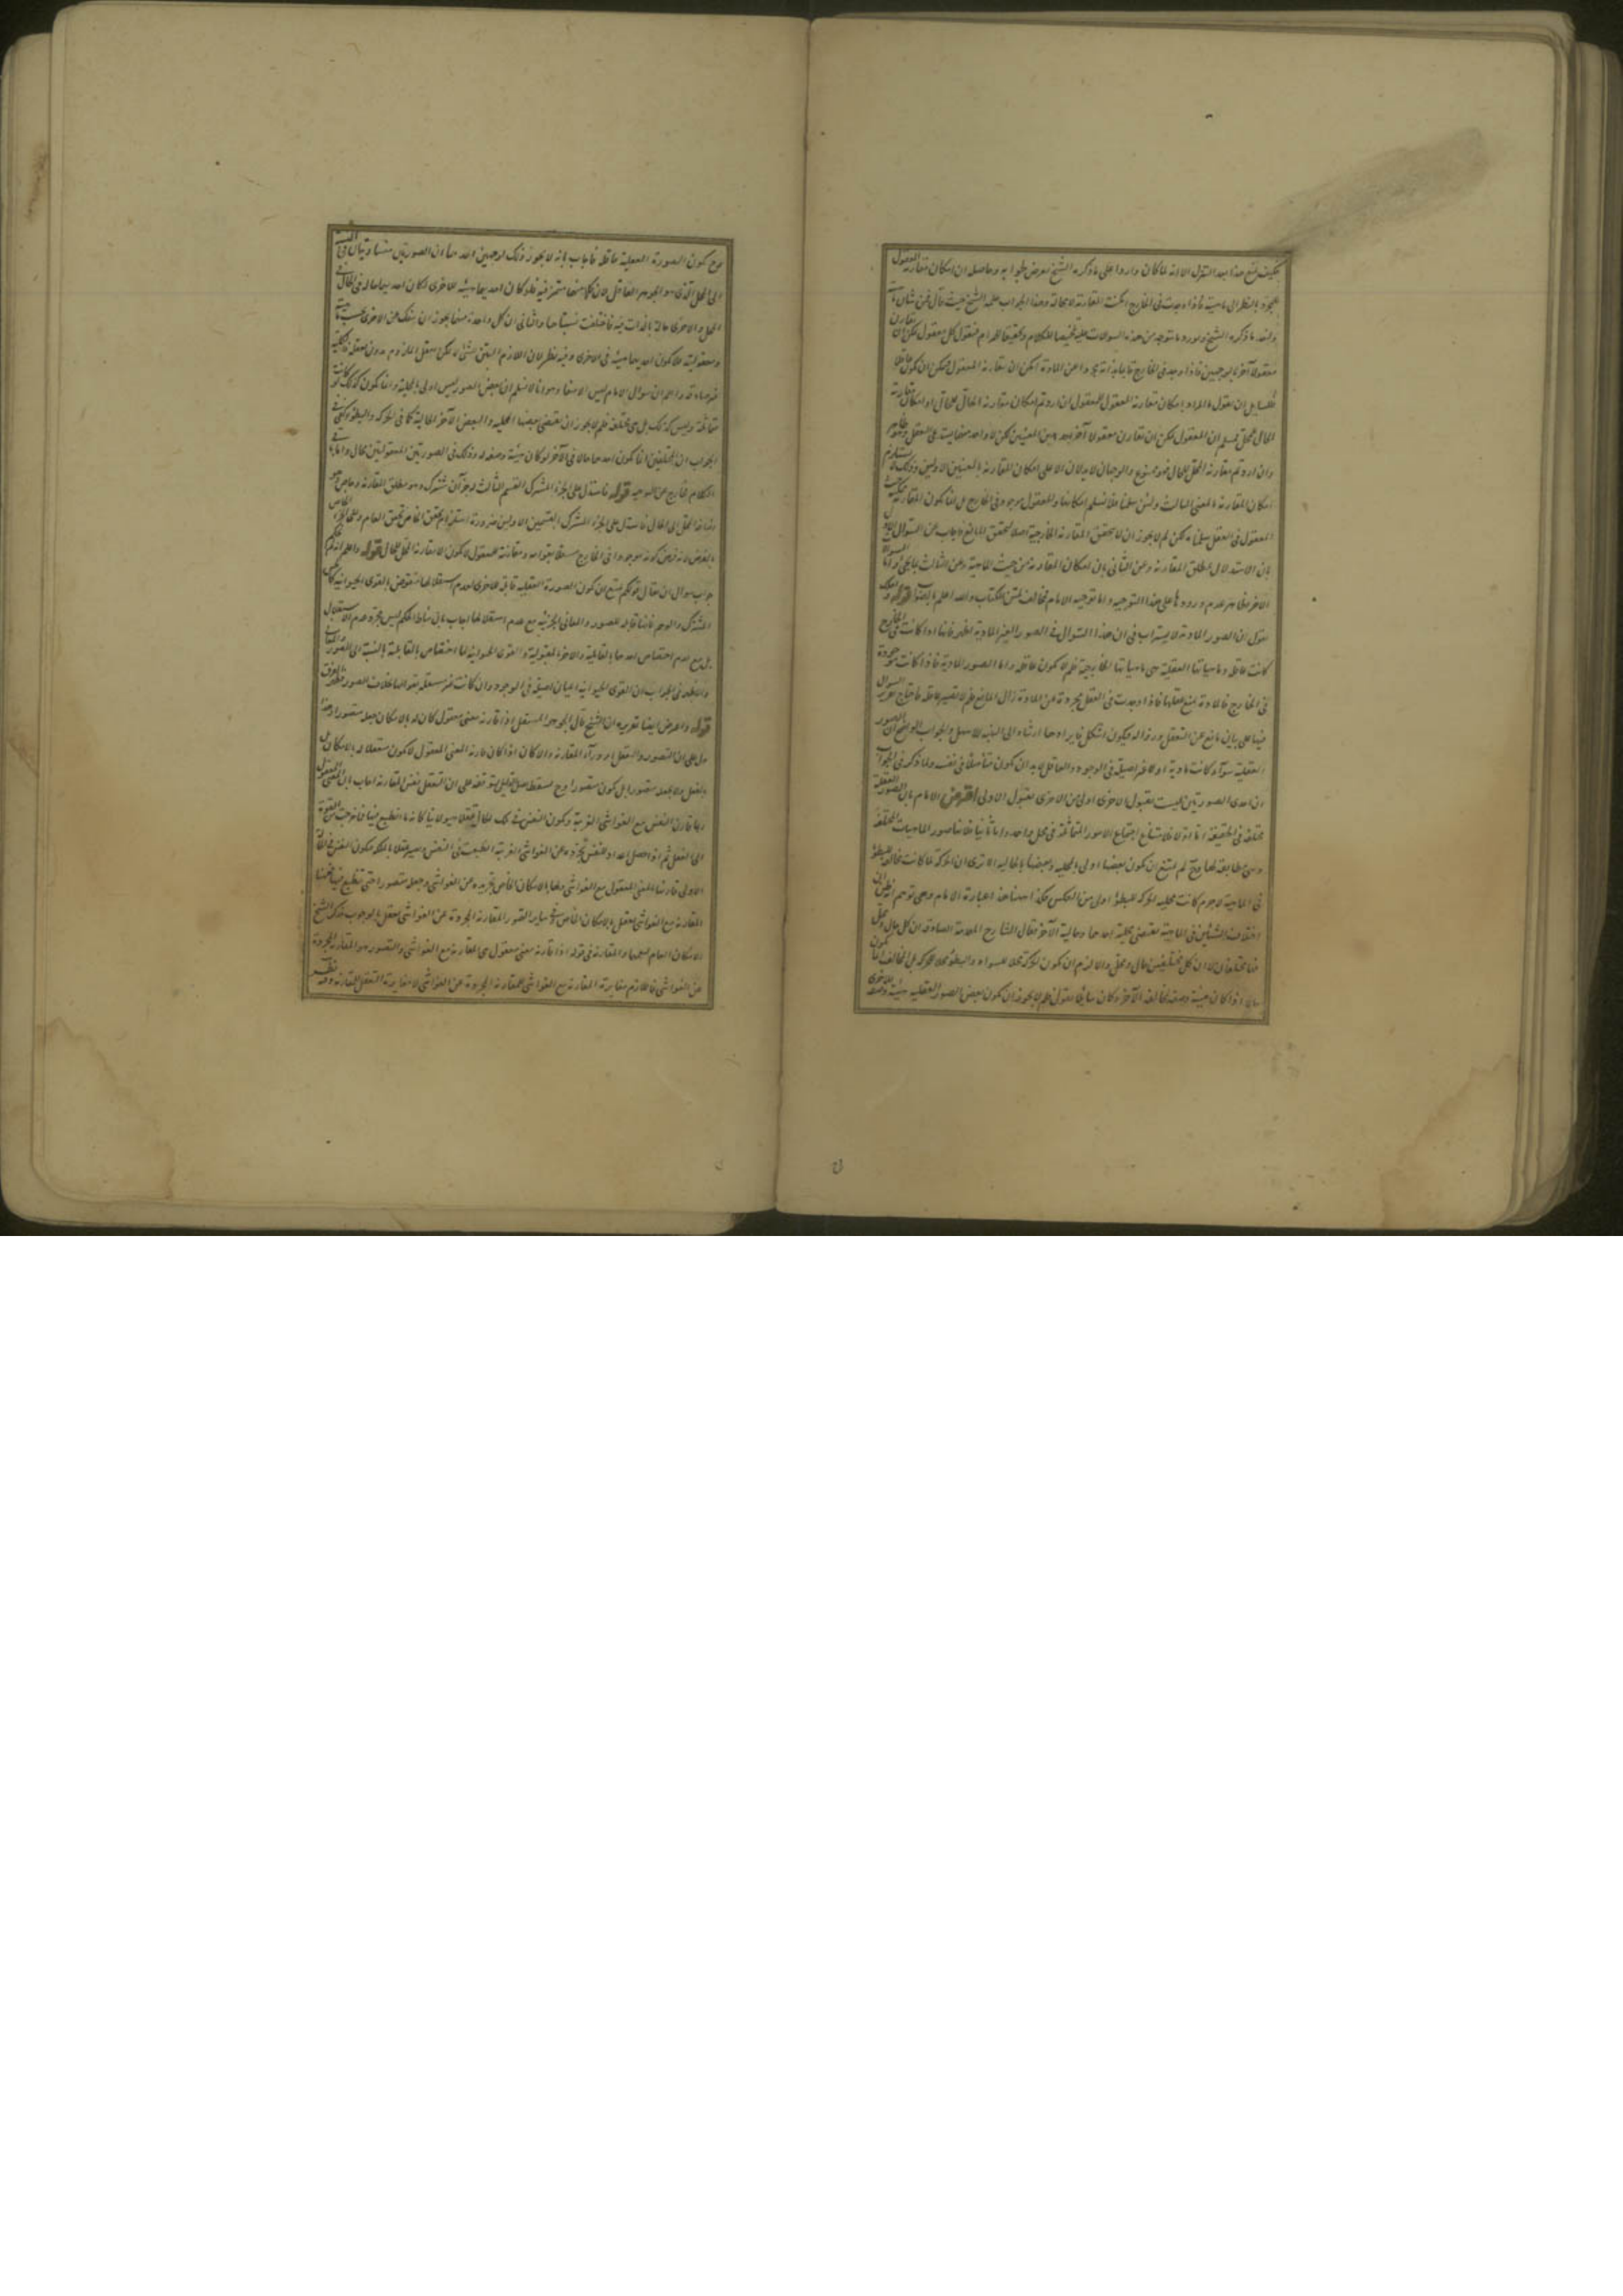 فكيف يمنع هذا بعد التنزل الا انه لما كان واردا على ما ذكره الشيخ تعرض لجوابه وحاصله ان امكان مقارنة المعقول
للمجرد بالنظر الى ماهيته فاذا وجدت فى الخارج امكنت المقارنة لا محالة وهذا الجواب علمه الشيخ حيث قال فمن شأن
ما ذكره الشيخ وما يتوجه من هذه السوالات عليه
معقولا آخر بالوجهين فاذا وجد فى الخارج قايما بذاته مجردا عن المادة امكن ان يقارنه المعقول فيمكن ان يكون عاقلا
فللسايل ان يقول ما المراد بامكان مقارنة المعقول للمعقول ان اردتم امكان مقارنة الحال للحال او امكان مقارنة
الحال للمحل فمسلم ان المعقول يمكن ان يقارن معقولا آخر باحد هذين المعنيين لكن لا
وان اردتم مقارنة المحل للحال فهو ممنوع والوجهان لا يدلان الا على امكان المقارنة بالمعنيين الاولين وذلك لا يستلزم
امكان المقارنة بالمعنى الثالث ولئن سلمنا فلا نسلم امكانها والمعقول موجود فى الخارج بل انما يكون المقارنة
المعقول فى العقل سلمناه لكن لم لا يجوز ان لا يتحقق المقارنة الخارجية اصلا لتحقق المانع فاجاب عن السوال الاول
بان الاستدلال بمطلق المقارنة وعن الثانى بان امكان المقارنة من حيث الماهية وعن الثالث
الاخر فظاهر عدم ورودها على هذا التوجيه واما توجيه الامام فمخالف لمتن الكتاب والله اعلم بالصواب قوله
نقول ان الصور المادية لا يستراب فى ان هذا السوال فى الصور الغير المادية اظهر فانها اذا كانت فى الخارج
كانت عاقلة وماهياتها العقلية هى ماهياتها الخارجية فلم لا يكون عاقلة واما الصور المادية فاذا كانت موجودة
فى الخارج فالمادة تمنع تعقلها فاذا وجدت فى العقل مجردة عن المادة زال المانع فلم لا تصير عاقلة فاحتاج تقرير السوال
فيها على بيان مانع عن التعقل وزواله فيكون اشكل
العقلية سوآء كانت مادية او لا غير اصيلة فى الوجود والعاقل لا بد ان يكون
ان احدى الصورتين ليست بقبول الاخرى اولى من الاخرى بقبول الاولى اعترض الامام بان الصور العقلية
مختلفة فى الحقيقة اما اولا فلامتناع اجتماع الامور المتماثلة فى محل واحد واما ثانيا فلانها صور الماهيات المختلفة
وهى مطابقة لها وح لم يمتنع ان يكون بعضها اولى بالمحلية وبعضها بالحالية الا ترى ان الحركة لما كانت مخالفة للبطؤ
فى الماهية لا جرم كانت محلية الحركة للبطؤ اولى من العكس هكذا
اختلاف الشيئين فى الماهية تقتضى محلية احدهما وحالية الآخر فقال الشارح المقدمة الصادقة ان كل حال ومحل
فهما مختلفان لا ان كل مختلفين حال ومحل والا لزم ان يكون الحركة محلا للسواد
حالا اذا كان هيئة وصفة لمخالفه الآخر وكان سايلا يقول فلم لا يجوز ان يكون بعض الصور العقلية هيئة للاخرى
وح يكون الصورة العقلية عاقلة فاجاب بانه لا يجوز ذلك لوجهين احدهما ان الصورتين متساويتان فى النسبة
الى المحل الذى هو الجوهر العاقل لان كلا منهما متحرز فيه فلو كان احديهما هيئة للاخرى لكان احديهما حالة فى الحال فى
المحل والاخرى حالة بالذات فيه فاختلفت نسبتاهما والثانى ان كل واحدة منهما يجوز ان ينفك عن الاخرى
ومعقوليته فلا يكون احديهما هيئة فى الاخرى وفيه نظر لان اللازم البين لشئ لا يمكن تعقل الملزوم بدون تعقله
واعلم ان سوال الامام ليس الا منعا وهو انا لا نسلم ان بعض الصور ليس اولى بالمحلية وانما يكون كذلك لو كانت
متماثلة وليس كذلك بل هى مختلفة فلم لا يجوز ان يقتضى بعضها المحلية والبعض الآخر الحالية كما فى الحركة والبطؤ ويكفى فى
الجواب ان المختلفين انما يكون احدهما حالا فى الآخر لو كان هيئة وصفة له وذلك فى الصورتين المعقولتين محال
الكلام خارج عن التوجيه قوله فاستدل على الجزء المشترك القسم الثالث له جزآن مشترك وهو مطلق المقارنة وخاص
اضافة المحل الى الحال فاستدل على الجزء المشترك بالقسمين الاولين ضرورة استلزام تحقق الخاص تحقق العام وعلى الجزء الخاص
بالفرض لانه فرض كونه موجودا فى الخارج مستقلا بقوامه ومقارنته للمعقول لا يكون الا مقارنة المحل للحال قوله واعلم انه
جواب سوال ان يقال حكمكم بمنع ان يكون الصورة العقلية قابلة للاخرى لعدم استقلالها منقوض بالقوى الحيوانية كالحس
المشترك والوهم فانها قابلة للصور والمعانى الجزئية مع عدم استقلالها اجاب بان مناط الحكم ليس مجرد عدم الاستقلال
بل مع عدم اختصاص احدهما بالقابلية والاخرى بالمقبولية والقوى الحيوانية لها اختصاص بالقابلية بالنسبة الى الصور والمعانى
والاظهر فى الجواب ان القوى الحيوانية اعيان اصيلة فى الوجود وان كانت غير مستقلة بقوامها بخلاف الصور
قوله والعرض ايضا تقريره ان الشيخ قال الموجود المستقل اذا قارنه معنى معقول كان له بالامكان جعله متصورا وهذا
يدل على ان التصور والتعقل امر ورآء المقارنة والا لكان اذا كان قارنه المعنى المعقول لا يكون متعقلا له بالامكان بل
بالفعل ولا بجعله متصورا بل يكون متصورا وح يسقط اصل الدليل لتوقفه على ان التعقل نفس المقارنة اجاب بان المعنى المعقول
ربما قارن النفس مع الغواشى الغريبة ويكون النفس فى تلك الحال عقلا هيولانيا
الى الفعل ثم اذا حصل استعداد للنفس تجرده عن الغواشى الغريبة انطبعت فى النفس ويصير عقلا بالملكة فيكون النفس فى الحالة
الاولى قارنها المعنى المعقول مع الغواشى ولها بالامكان الخاص تجريده عن الغواشى وجعله متصورا حتى ينطبع فيها
المقارنة مع الغواشى تعقل بالامكان الخاص فى ساير الصور المقارنة المجردة عن الغواشى تعقل بالوجوب فذكر الشيخ
الامكان العام ليعمهما والمقارنة فى قوله اذا قارنه معنى معقول هى المقارنة مع الغواشى والتصور هو المقارنة المجردة
عن الغواشى فاللازم مغايرة المقارنة مع الغواشى للمقارنة المجردة عن الغواشى لا مغايرة التعقل للمقارنة وفيه نظر